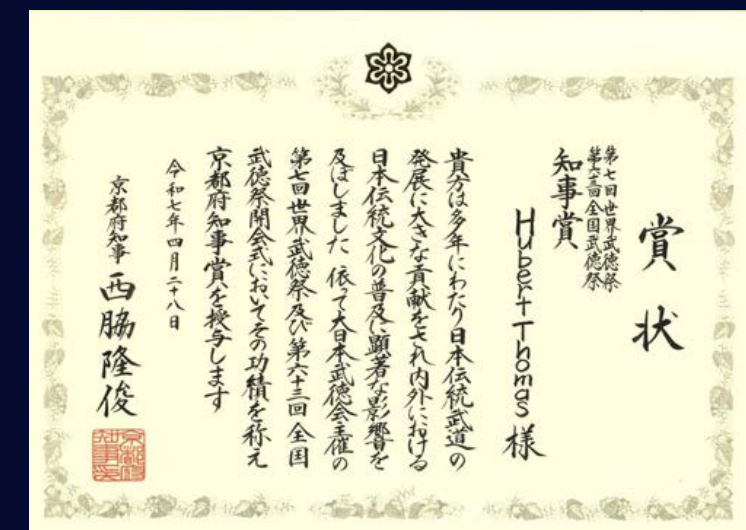 賞状
第七回世界武徳祭
第六十三回全国武徳祭
知事賞
Hubert Thomas 様
貴方は多年にわたり日本伝統武道の
発展に大きな貢献をされ内外における
日本伝統文化の普及に顕著な影響を
及ぼしました 依って大日本武徳会主催の
第七回世界武徳祭及び第六十三回全国
武徳祭開会式においてその功績を称え
京都府知事賞を授与します
令和七年四月二十八日
京都府知事 西脇隆俊